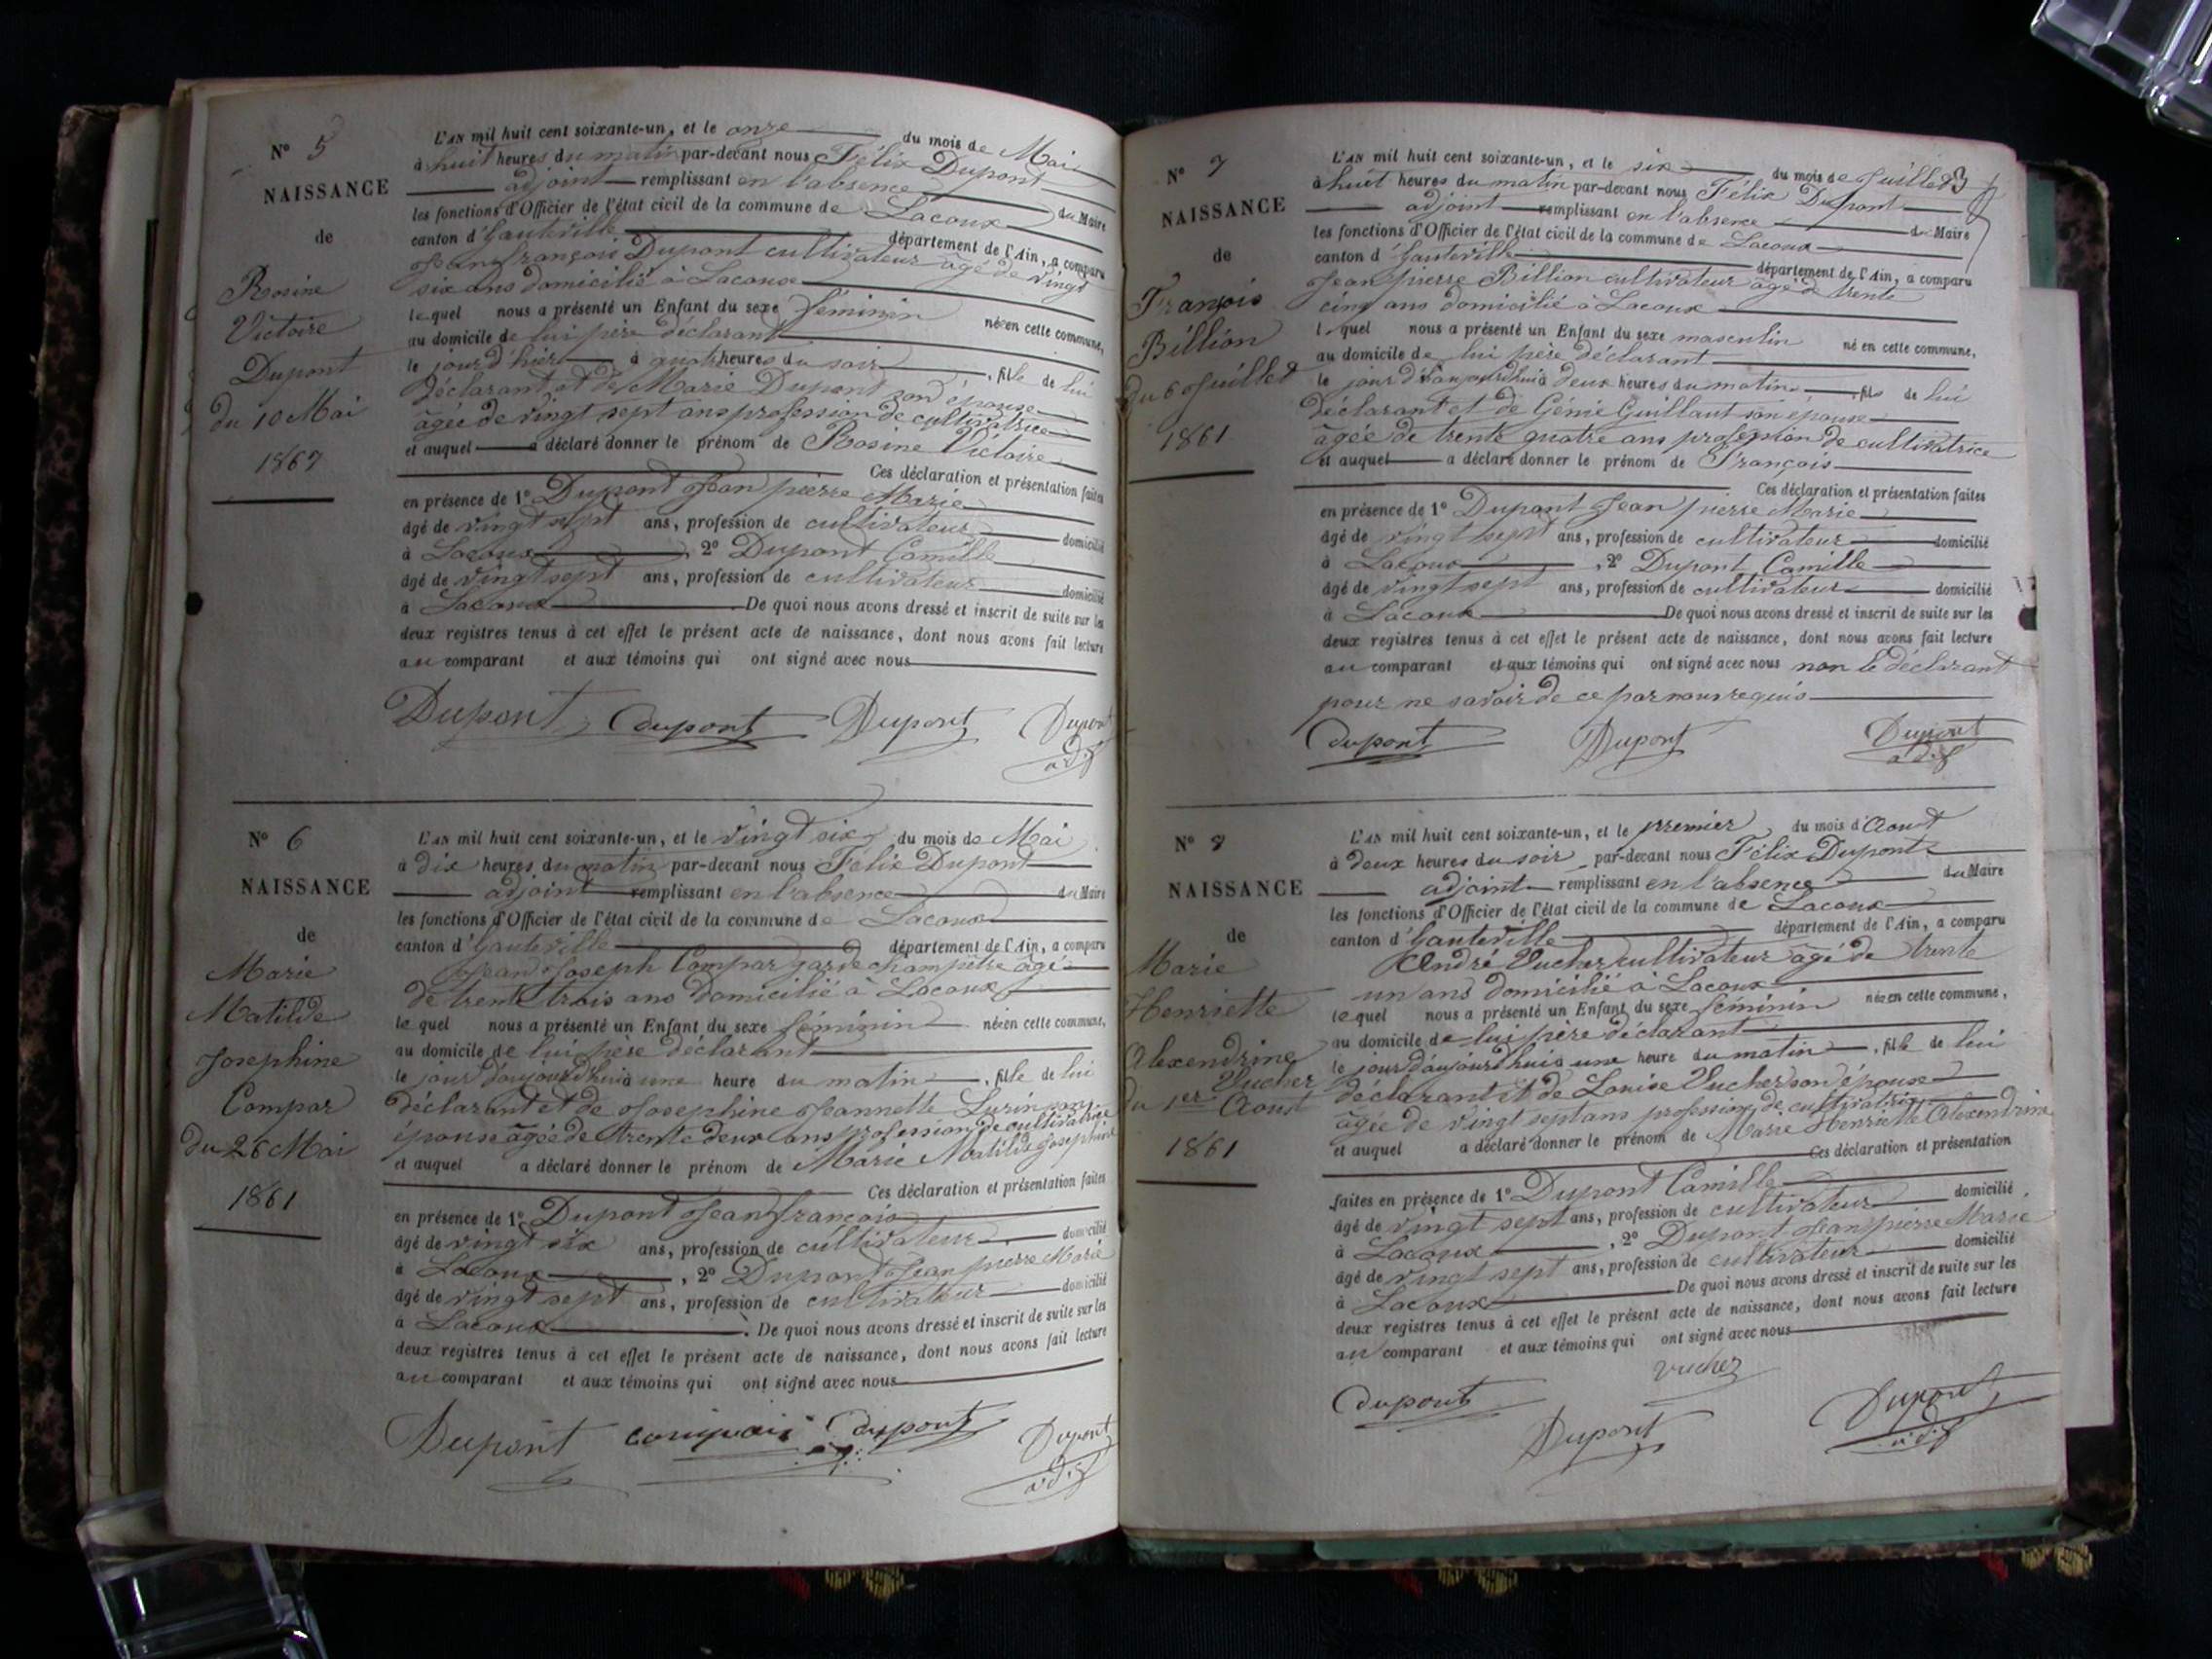 N° 5
NAISSANCE
de
Rosine
Victoire
Dupont
du 10 Mai
1867
L'AN mil huit cent soixante-un, et le onze du mois de Mai
à huit heures du matin par-devant nous Félix Dupont
adjoint remplissant en l'absence du Maire
les fonctions d'Officier de l'état civil de la commune de Lacoux
canton d'hauteville département de l'Ain, a comparu
Jean françois Dupont cultivateur âgé de vingt
six ans domicilié à Lacoux
lequel nous a présenté un Enfant du sexe féminin née en cette commune,
au domicile de lui père déclarant
le jour d'hier à quatre heures du soir, fille de lui
déclarant et de Marie Dupont son épouse
âgée de vingt sept ans profession de cultivatrice
et auquel a déclaré donner le prénom de Rosine Victoire
Ces déclaration et présentation faites
en présence de 1° Dupont Jean pierre Marie
âgé de vingt sept ans, profession de cultivateur domicilié
à Lacoux, 2° Dupont Camille
âgé de vingt sept ans, profession de cultivateur domicilié
à Lacoux. De quoi nous avons dressé et inscrit de suite sur les
deux registres tenus à cet effet le présent acte de naissance, dont nous avons fait lecture
au comparant et aux témoins qui ont signé avec nous
Dupont dupont Dupont Dupont
adj
N° 6
NAISSANCE
de
Marie
Matilde
Josephine
Compar
du 26 Mai
1861
L'AN mil huit cent soixante-un, et le vingt six du mois de Mai
à dix heures du matin par-devant nous Félix Dupont
adjoint remplissant en l'absence du Maire
les fonctions d'Officier de l'état civil de la commune de Lacoux
canton d'hauteville département de l'Ain, a comparu
Jean Joseph Compar garde champêtre âgé
de trente trois ans domicilié à Lacoux
lequel nous a présenté un Enfant du sexe féminin née en cette commune,
au domicile de lui père déclarant
le jour d'aujourd'hui à une heure du matin, fille de lui
déclarant et de Josephine Jeannette Luzin son
épouse âgée de trente deux ans profession de cultivatrice
et auquel a déclaré donner le prénom de Marie Matilde Josephine
Ces déclaration et présentation faites
en présence de 1° Dupont Jean françois
âgé de vingt six ans, profession de cultivateur domicilié
à Lacoux, 2° Dupont Jean pierre Marie
âgé de vingt sept ans, profession de cultivateur domicilié
à Lacoux. De quoi nous avons dressé et inscrit de suite sur les
deux registres tenus à cet effet le présent acte de naissance, dont nous avons fait lecture
au comparant et aux témoins qui ont signé avec nous
Dupont compair dupont Dupont
adj
N° 7
NAISSANCE
de
François
Billion
du 6 Juillet
1861
L'AN mil huit cent soixante-un, et le six du mois de Juillet 3
à huit heures du matin par-devant nous Félix Dupont
adjoint remplissant en l'absence du Maire
les fonctions d'Officier de l'état civil de la commune de Lacoux
canton d'hauteville département de l'Ain, a comparu
Jean pierre Billion cultivateur âgé de trente
cinq ans domicilié à Lacoux
lequel nous a présenté un Enfant du sexe masculin né en cette commune,
au domicile de lui père déclarant
le jour d'aujourdhui à deux heures du matin, fils de lui
déclarant et de Génie Guillaut son épouse
âgée de trente quatre ans profession de cultivatrice
et auquel a déclaré donner le prénom de François
Ces déclaration et présentation faites
en présence de 1° Dupont Jean pierre Marie
âgé de vingt sept ans, profession de cultivateur domicilié
à Lacoux, 2° Dupont Camille
âgé de vingt sept ans, profession de cultivateur domicilié
à Lacoux De quoi nous avons dressé et inscrit de suite sur les
deux registres tenus à cet effet le présent acte de naissance, dont nous avons fait lecture
au comparant et aux témoins qui ont signé avec nous non le déclarant
pour ne savoir de ce par nous requis
dupont Dupont Dupont
adj
N° 8
NAISSANCE
de
Marie
Henriette
Alexendrine
Vucher
du 1er Aout
1861
L'AN mil huit cent soixante-un, et le premier du mois d'Aout
à deux heures du soir par-devant nous Félix Dupont
adjoint remplissant en l'absence du Maire
les fonctions d'Officier de l'état civil de la commune de Lacoux
canton d'hauteville département de l'Ain, a comparu
André Vucher cultivateur âgé de trente
un ans domicilié à Lacoux
lequel nous a présenté un Enfant du sexe féminin née en cette commune,
au domicile de lui père déclarant
le jour d'aujourd'hui à une heure du matin, fille de lui
déclarant et de Louise Vucher son épouse
âgée de vingt sept ans profession de cultivatrice
et auquel a déclaré donner le prénom de Marie Henriette Alexendrine
Ces déclaration et présentation
faites en présence de 1° Dupont Camille
âgé de vingt sept ans, profession de cultivateur domicilié
à Lacoux, 2° Dupont Jean pierre Marie
âgé de vingt sept ans, profession de cultivateur domicilié
à Lacoux De quoi nous avons dressé et inscrit de suite sur les
deux registres tenus à cet effet le présent acte de naissance, dont nous avons fait lecture
au comparant et aux témoins qui ont signé avec nous
vucher
dupont Dupont Dupont
adj